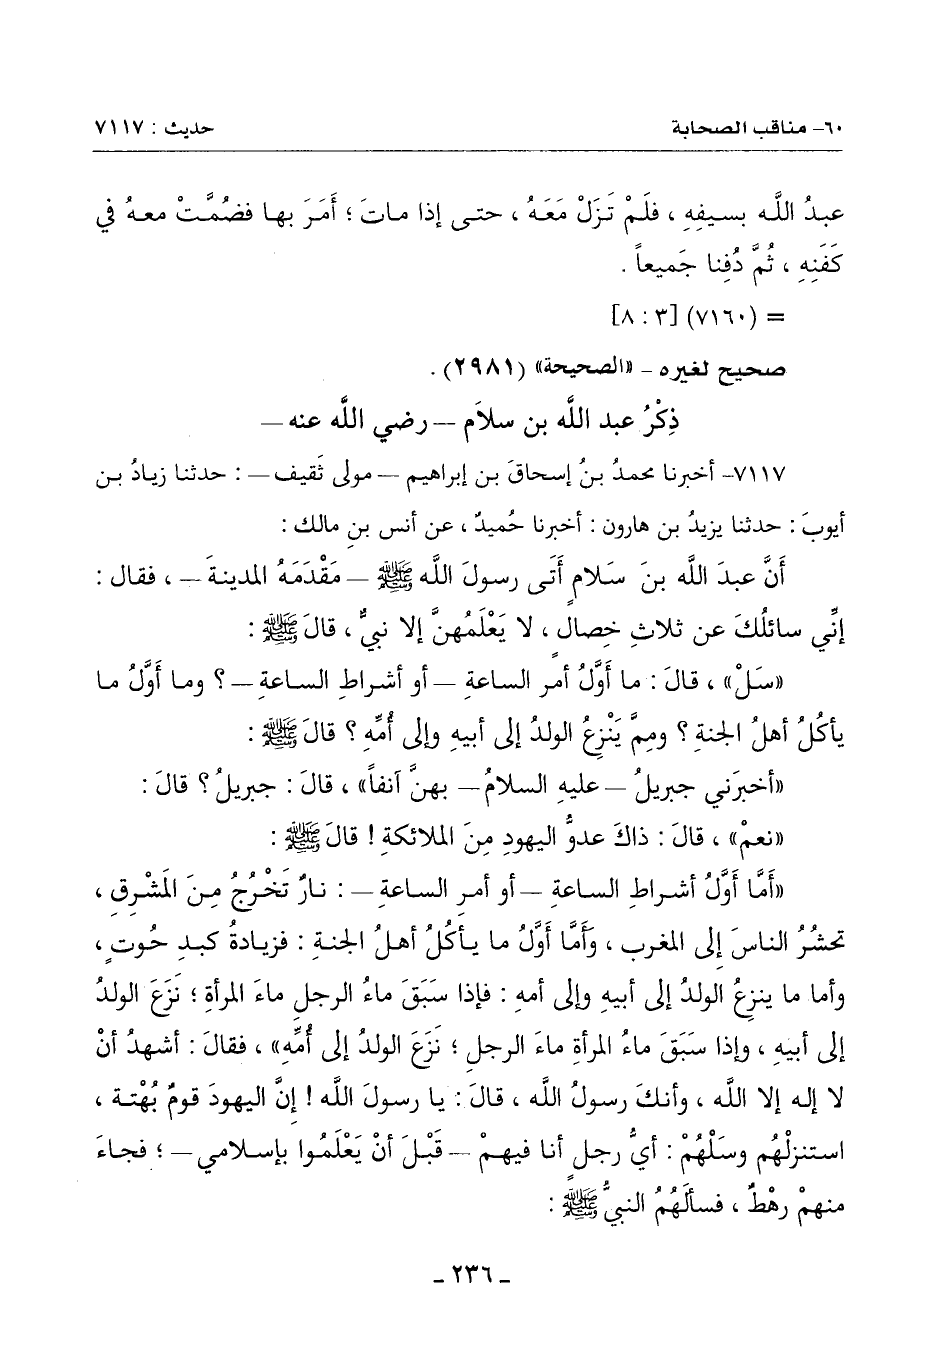 ٦٠- مناقب الصحابة حديث : ٧١١٧
عبدُ اللَّه بسيفِهِ ، فلَمْ تَزَلْ مَعَهُ ، حتى إذا ماتَ ؛ أَمَرَ بها فضُمَّتْ معهُ في
كَفَنِهِ ، ثُمَّ دُفِنا جَميعاً .
= (٧١٦٠) [٣ : ٨]
صحيح لغيره - «الصحيحة» (٢٩٨١) .
ذِكْرُ عبد اللَّه بن سلاَم — رضي اللَّه عنه —
٧١١٧- أخبرنا محمدُ بنُ إسحاقَ بن إبراهيم — مولى ثَقيف — : حدثنا زيادُ بن
أيوبَ : حدثنا يزيدُ بن هارون : أخبرنا حُميدٌ ، عن أنس بنِ مالك :
أَنَّ عبدَ اللَّه بنَ سَلامٍ أَتَى رسولَ اللَّه ﷺ — مَقْدَمَهُ المدينةَ — ، فقال :
إنِّي سائلُكَ عن ثلاثِ خِصالٍ ، لا يَعْلَمُهنَّ إلا نبيٌّ ، قالَ ﷺ :
«سَلْ» ، قالَ : ما أَوَّلُ أمرِ الساعةِ — أو أشراطِ الساعةِ — ؟ وما أَوَّلُ ما
يأكُلُ أهلُ الجنةِ ؟ ومِمَّ يَنْزِعُ الولدُ إلى أبيهِ وإلى أُمِّهِ ؟ قالَ ﷺ :
«أخبرَني جبريلُ — عليهِ السلامُ — بهنَّ آنفاً» ، قالَ : جبريلُ ؟ قالَ :
«نعمْ» ، قالَ : ذاكَ عدوُّ اليهودِ مِنَ الملائكةِ ! قالَ ﷺ :
«أَمَّا أَوَّلُ أشراطِ الساعةِ — أو أمرِ الساعةِ — : نارٌ تَخْرُجُ مِنَ المَشْرِقِ ،
تحشُرُ الناسَ إلى المغربِ ، وأَمَّا أَوَّلُ ما يأكُلُ أهلُ الجنةِ : فزيادةُ كبدِ حُوتٍ ،
وأما ما ينزِعُ الولدُ إلى أبيهِ وإلى أمهِ : فإذا سَبَقَ ماءُ الرجلِ ماءَ المرأةِ ؛ نَزَعَ الولدُ
إلى أبيهِ ، وإذا سَبَقَ ماءُ المرأةِ ماءَ الرجلِ ؛ نَزَعَ الولدُ إلى أُمِّهِ» ، فقالَ : أشهدُ أنْ
لا إله إلا اللَّه ، وأنكَ رسولُ اللَّه ، قالَ : يا رسولَ اللَّه ! إنَّ اليهودَ قومٌ بُهْتة ،
استنزلْهُم وسَلْهُمْ : أيُّ رجلٍ أنا فيهمْ — قَبْلَ أنْ يَعْلَمُوا بإسلامي — ؛ فجاءَ
منهمْ رهْطٌ ، فسألَهُمُ النبيُّ ﷺ :
- ٢٣٦ -